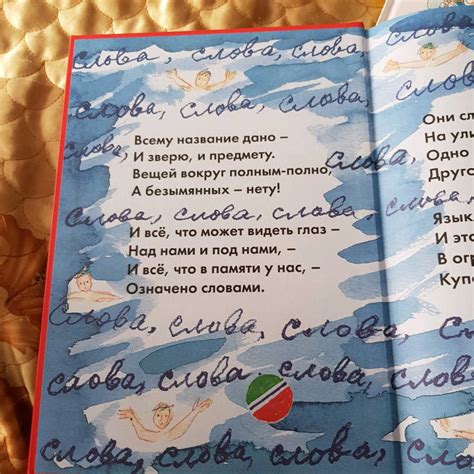 слова, слова, слова,
слова, слова, слова,
слова,
Всему название дано –
И зверю, и предмету.
Вещей вокруг полным-полно,
А безымянных – нету!
слова,
слова, слова, слова,
И всё, что может видеть глаз –
Над нами и под нами, –
И всё, что в памяти у нас, –
Означено словами.
слова, слова, слова,
слова, слова. слова,
слова, слова, слова,
слова
слова,
Они
На
Одно
слова,
И
В
слова,
слова,
слова